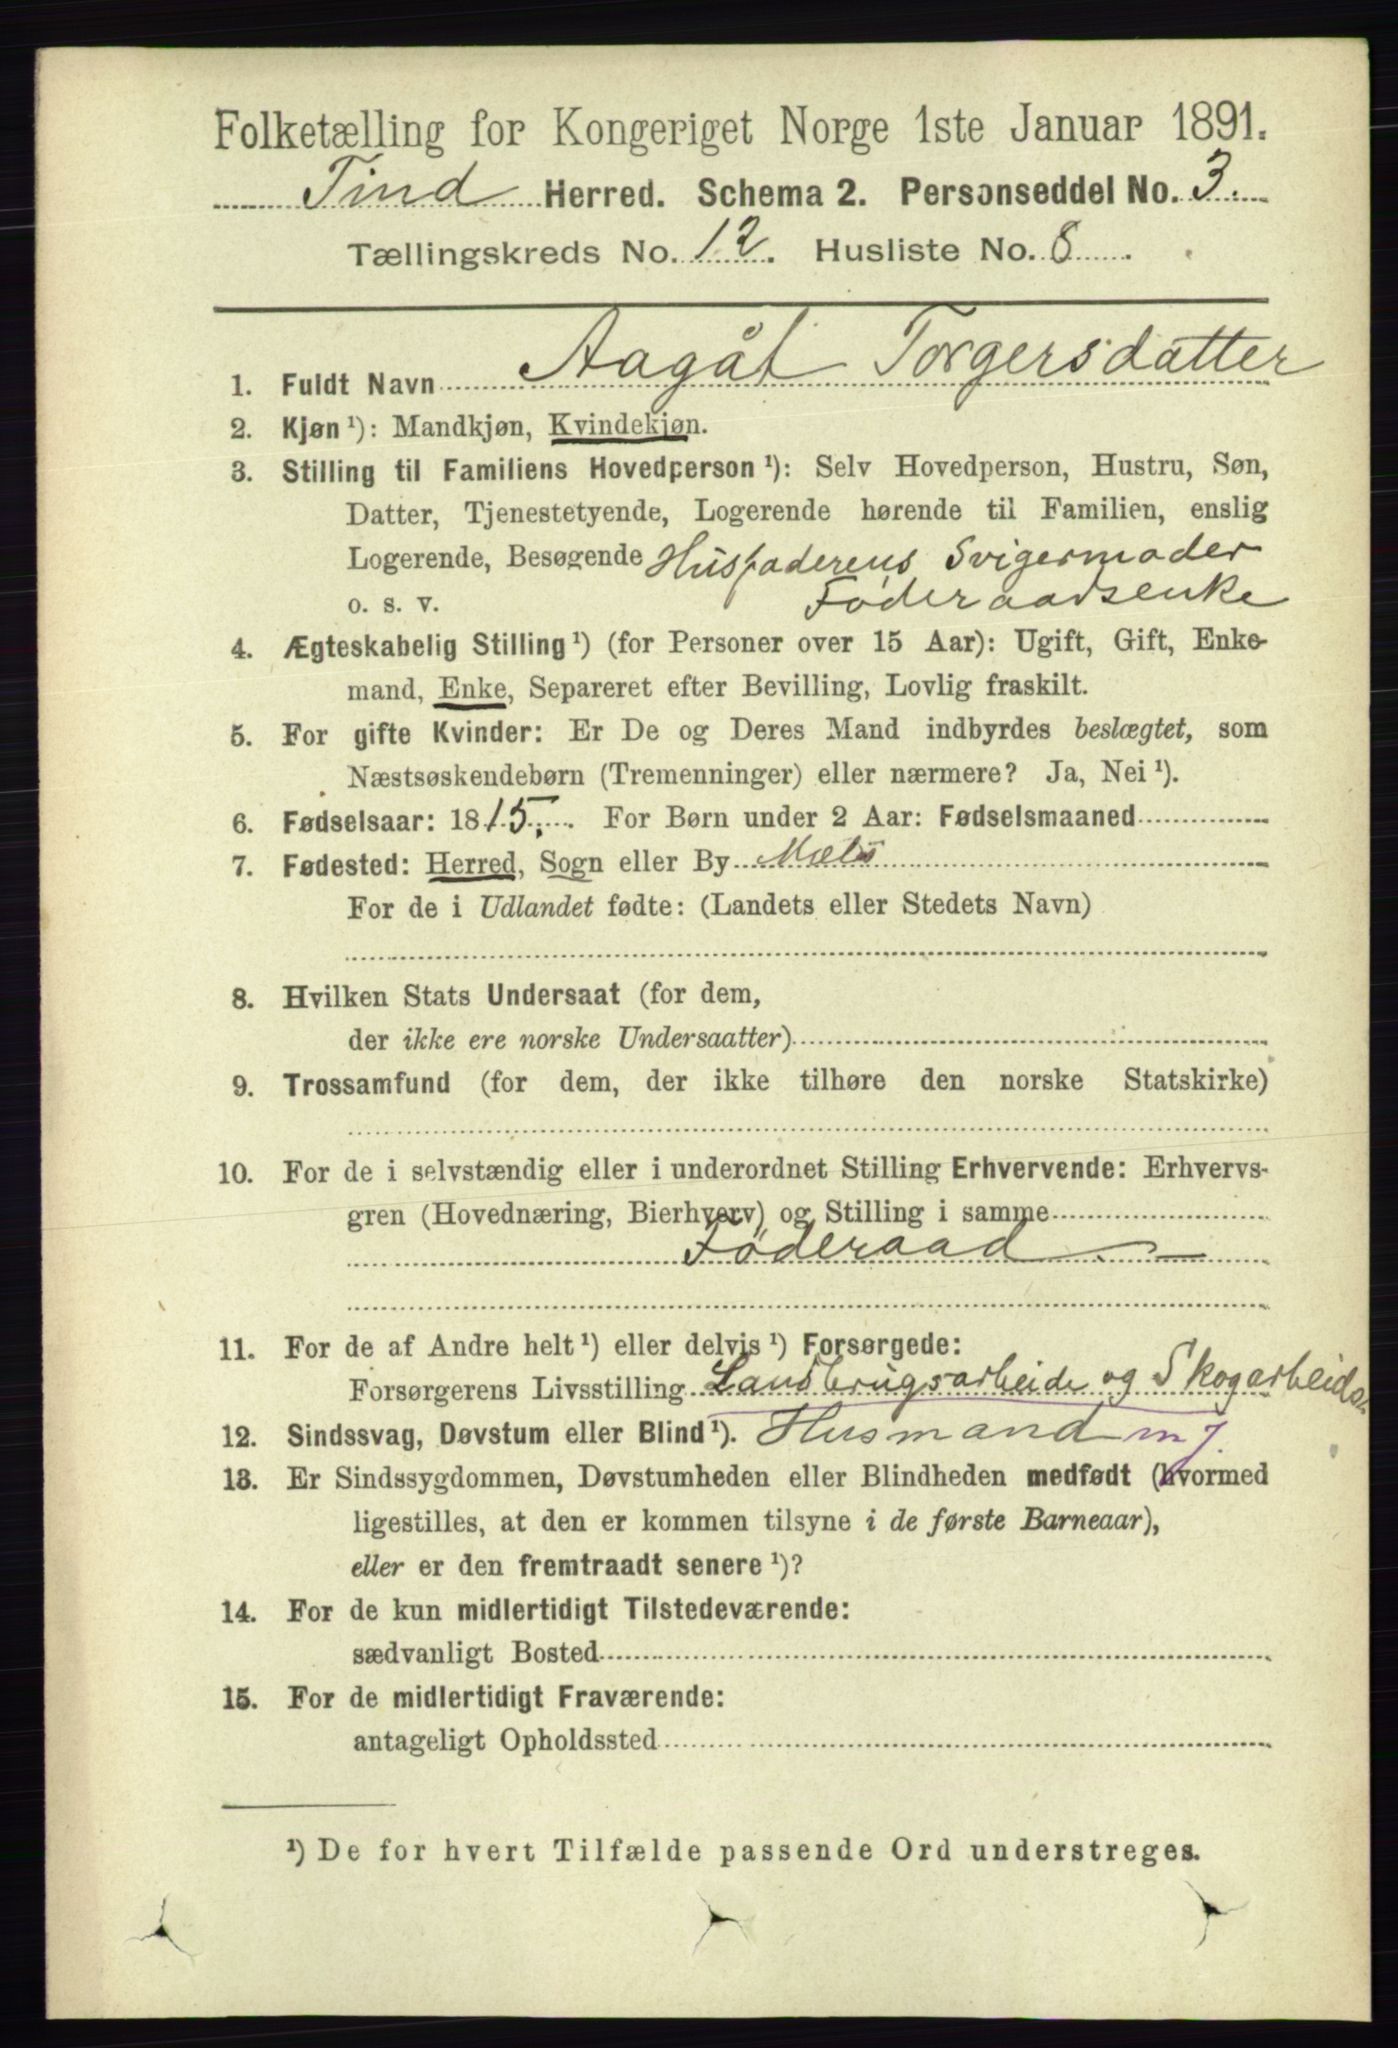 Folketælling for Kongeriget Norge 1ste Januar 1891.
Tind Herred. Schema 2. Personseddel No. 3.
Tællingskreds No. 12. Husliste No. 8.
1. Fuldt Navn Aagåt Torgersdatter
2. Kjøn ¹): Mandkjøn, Kvindekjøn.
3. Stilling til Familiens Hovedperson ¹): Selv Hovedperson, Hustru, Søn,
Datter, Tjenestetyende, Logerende hørende til Familien, enslig
Logerende, Besøgende Husfaderens Svigermoder
o. s. v. Føderaadsenke
4. Ægteskabelig Stilling ¹) (for Personer over 15 Aar): Ugift, Gift, Enke-
mand, Enke, Separeret efter Bevilling, Lovlig fraskilt.
5. For gifte Kvinder: Er De og Deres Mand indbyrdes beslægtet, som
Næstsøskendebørn (Tremenninger) eller nærmere? Ja, Nei ¹).
6. Fødselsaar: 1815. For Børn under 2 Aar: Fødselsmaaned
7. Fødested: Herred, Sogn eller By
For de i Udlandet fødte: (Landets eller Stedets Navn)
8. Hvilken Stats Undersaat (for dem,
der ikke ere norske Undersaatter)
9. Trossamfund (for dem, der ikke tilhøre den norske Statskirke)
10. For de i selvstændig eller i underordnet Stilling Erhvervende: Erhvervs-
gren (Hovednæring, Bierhverv) og Stilling i samme
Føderaad
11. For de af Andre helt ¹) eller delvis ¹) Forsørgede:
Forsørgerens Livsstilling Landbrugsarbeide og Skogarbeide
12. Sindssvag, Døvstum eller Blind ¹). Husmand m j.
13. Er Sindssygdommen, Døvstumheden eller Blindheden medfødt (hvormed
ligestilles, at den er kommen tilsyne i de første Barneaar),
eller er den fremtraadt senere ¹)?
14. For de kun midlertidigt Tilstedeværende:
sædvanligt Bosted
15. For de midlertidigt Fraværende:
antageligt Opholdssted
¹) De for hvert Tilfælde passende Ord understreges.